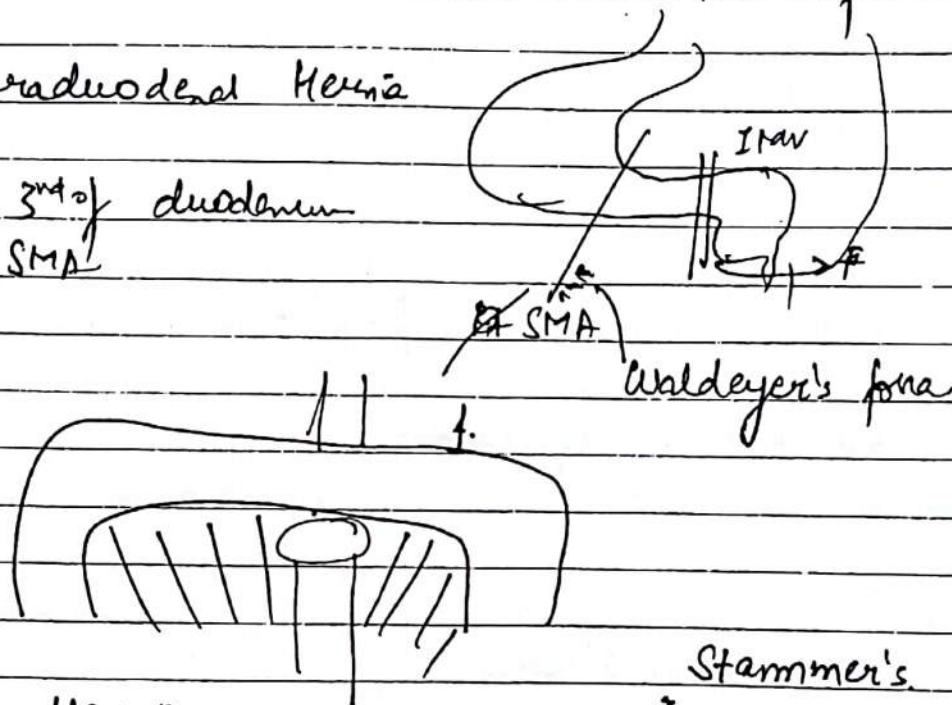 raduodenal Hernia
3rd of duodenum
SMA
SMA
Waldeyer's fossa
Stammer's.